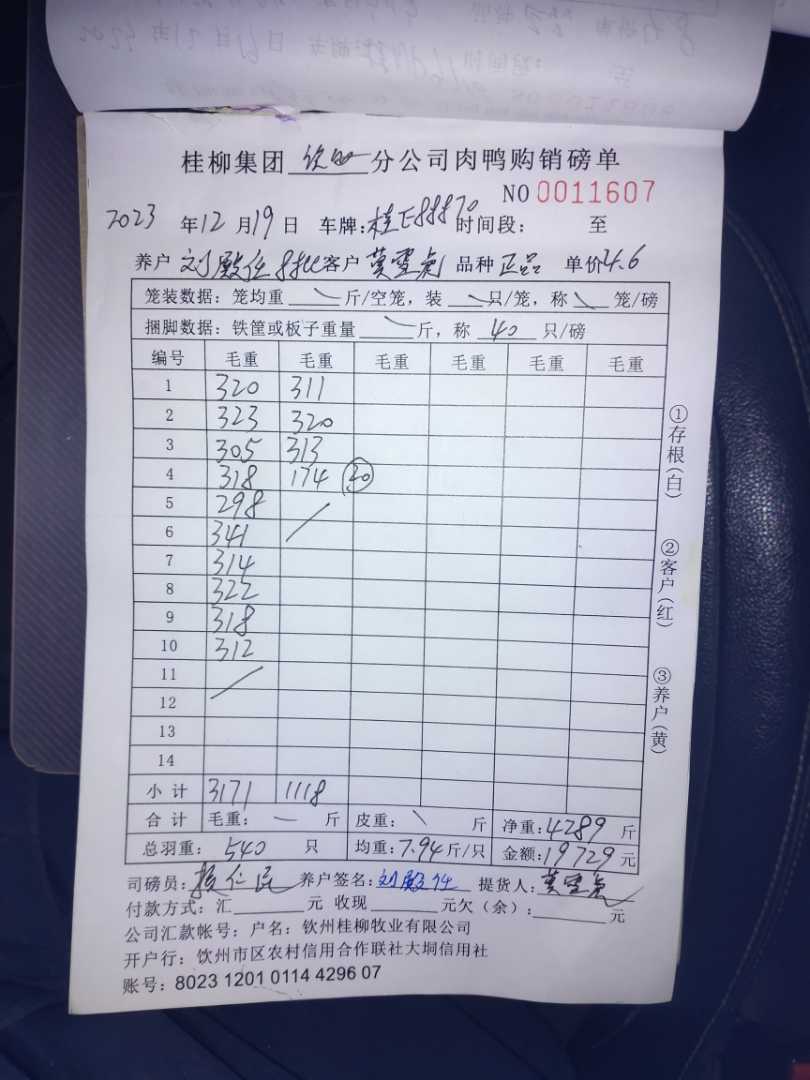 桂柳集团 钦州 分公司肉鸭购销磅单
NO 0011607
2023 年12月19日 车牌:桂E88870 时间段: 至
养户 刘殿任 8批 客户 黄雪彪 品种 正品 单价 4.6
笼装数据: 笼均重 斤/空笼, 装 只/笼, 称 笼/磅
捆脚数据: 铁筐或板子重量 斤, 称 40 只/磅
编号 毛重 毛重 毛重 毛重 毛重 毛重
1 320 311
2 323 320
3 305 313
4 318 174 (20)
5 298
6 341
7 314
8 322
9 318
10 312
11
12
13
14
小计 3171 1118
合计 毛重: — 斤 皮重: 斤 净重:4289 斤
总羽重: 540 只 均重:7.94斤/只 金额:19729元
司磅员: 养户签名:刘殿任 提货人:黄雪彪
付款方式: 汇 元 收现 元欠(余): 元
公司汇款帐号: 户名: 钦州桂柳牧业有限公司
开户行: 钦州市区农村信用合作联社大垌信用社
账号: 8023 1201 0114 4296 07
①存根(白)
②客户(红)
③养户(黄)